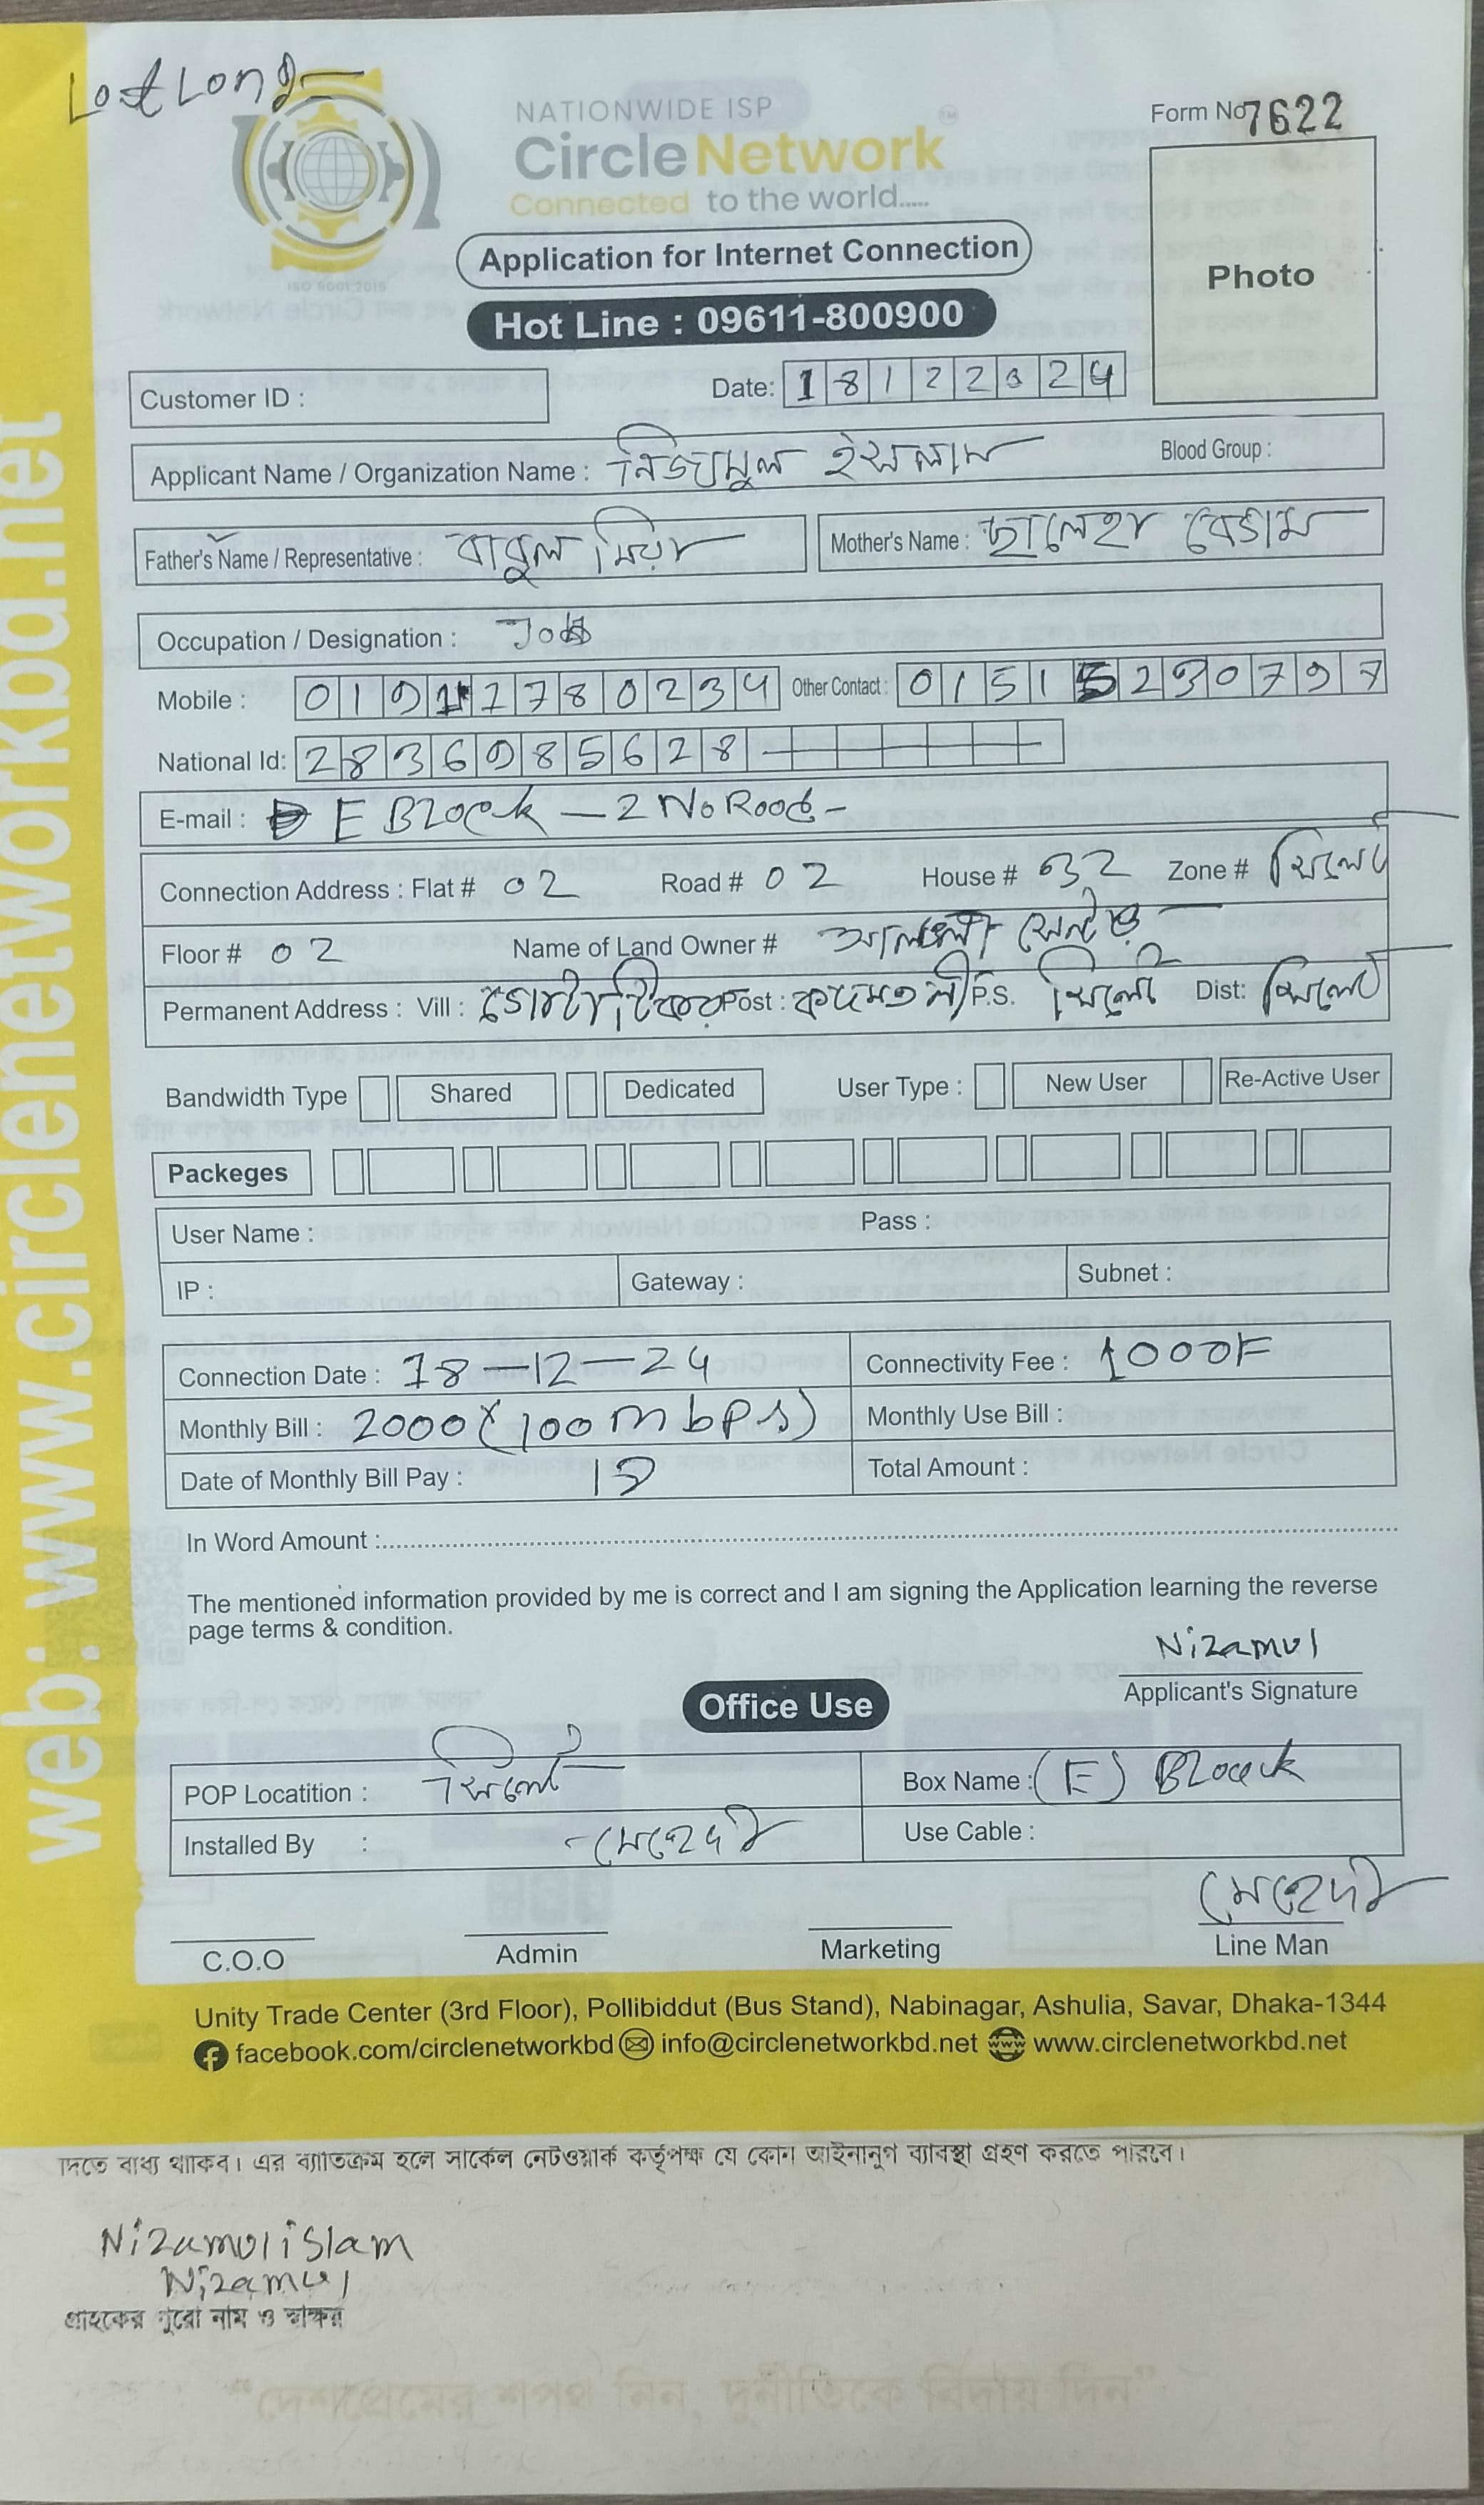 LostLong
NATIONWIDE ISP
Form No 7622
CircleNetwork™
Connected to the world.....
ISO 9001:2015
Application for Internet Connection
Photo
Hot Line : 09611-800900
Customer ID :
Date: 18122024
Applicant Name / Organization Name : নিজামুল ইসলাম Blood Group :
Father's Name / Representative : বাবুল মিয়া Mother's Name : ছালেহা বেগম
Occupation / Designation : Job
Mobile : 01911780234 Other Contact : 01515230797
National Id: 2836985628
E-mail : E Block - 2 No Road -
Connection Address : Flat # 02 Road # 02 House # 032 Zone # সিলেট
Floor # 02 Name of Land Owner #
Permanent Address : Vill : গোটাটিকর Post : কদমতলী P.S. সিলেট Dist: সিলেট
Bandwidth Type Shared Dedicated User Type : New User Re-Active User
Packeges
User Name : Pass :
IP : Gateway : Subnet :
Connection Date : 18-12-24 Connectivity Fee : 1000F
Monthly Bill : 2000 (100 mbps) Monthly Use Bill :
Date of Monthly Bill Pay : 15 Total Amount :
In Word Amount :
The mentioned information provided by me is correct and I am signing the Application learning the reverse
page terms & condition.
Nizamul
Applicant's Signature
Office Use
POP Locatition : সিলেট Box Name : (E) Block
Installed By : মেহেদী Use Cable :
মেহেদী
C.O.O Admin Marketing Line Man
Unity Trade Center (3rd Floor), Pollibiddut (Bus Stand), Nabinagar, Ashulia, Savar, Dhaka-1344
facebook.com/circlenetworkbd info@circlenetworkbd.net www.circlenetworkbd.net
web: www.circlenetworkbd.net
দিতে বাধ্য থাকিব। এর ব্যাতিক্রম হলে সার্কেল নেটওয়ার্ক কর্তৃপক্ষ যে কোন আইনানুগ ব্যাবস্থা গ্রহণ করতে পারবে।
Nizamul islam
Nizamul
গ্রাহকের পুরো নাম ও স্বাক্ষর
“দেশপ্রেমের শপথ নিন, দুর্নীতিকে বিদায় দিন”